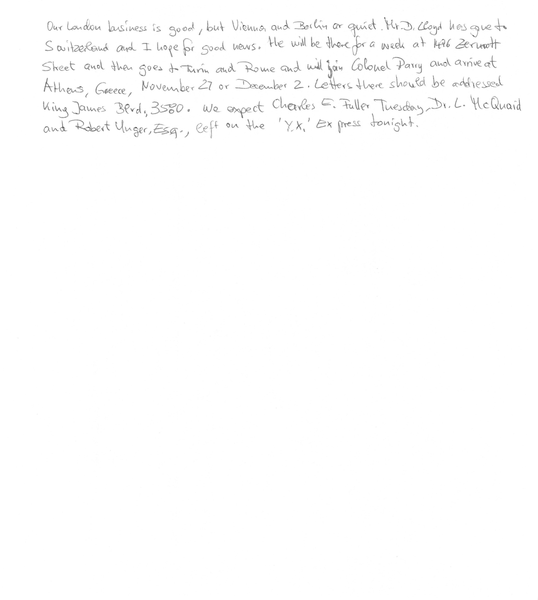 Our London business is good, but Vienna and Berlin or quiet. Mr. D. Lloyd has gone to
Switzerland and I hope for good news. He will be there for a week at 1496 Zermott
Street and then goes to Turin and Rome and will join Colonel Parry and arrive at
Athens, Greece, November 27 or December 2. Letters there should be addressed
King James Blvd., 3580. We expect Charles E. Fuller Tuesday, Dr. L. McQuaid
and Robert Unger, Esq., left on the 'Y.X.' Express tonight.